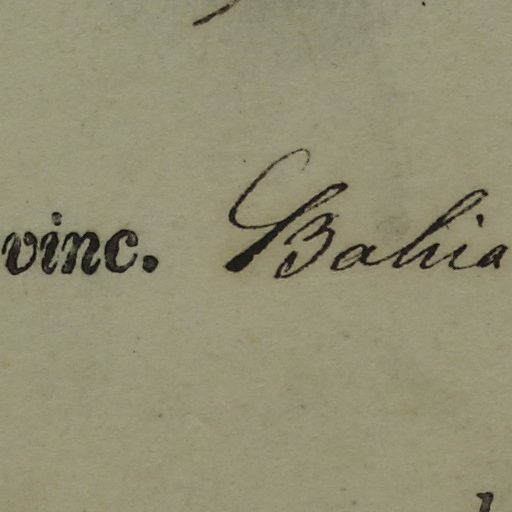 vinc. Bahia